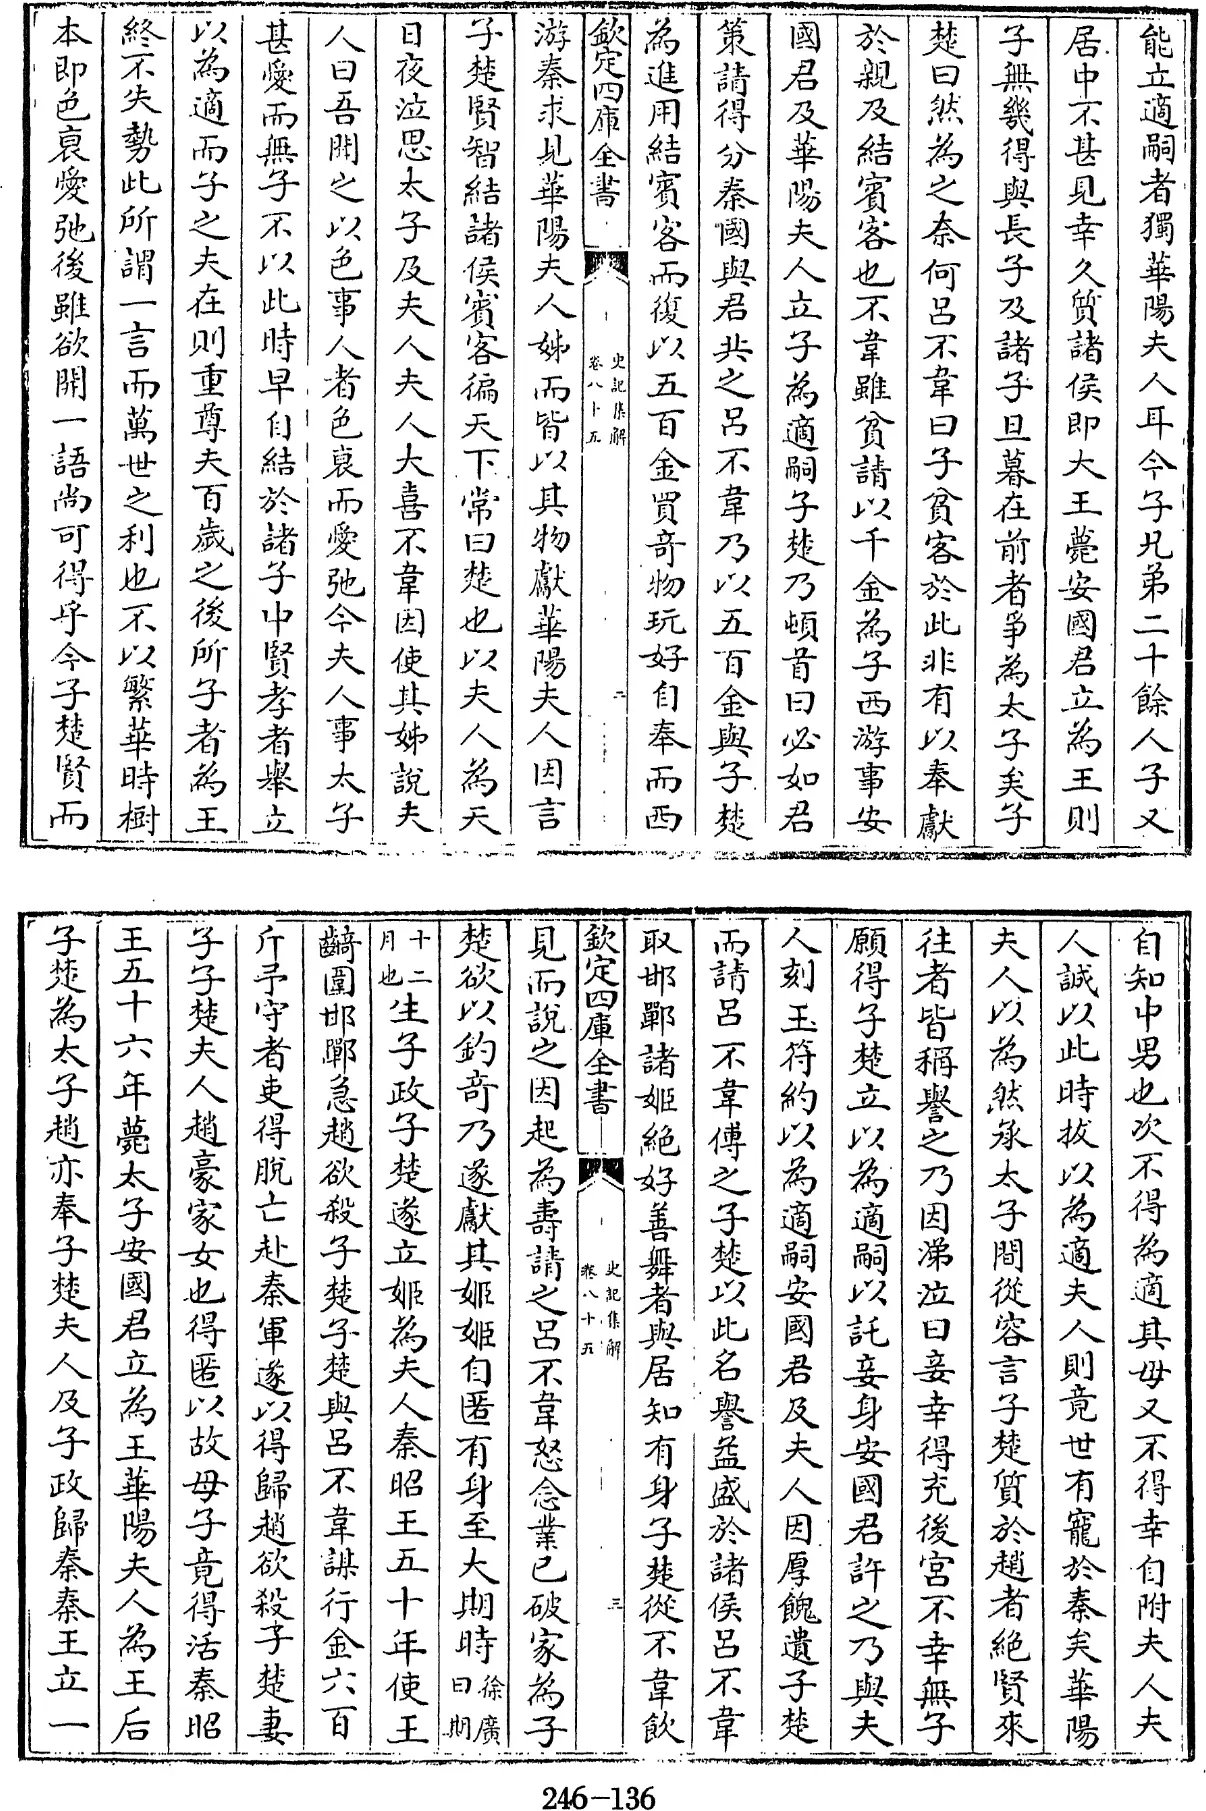 能立適嗣者獨華陽夫人耳今子兄弟二十餘人子又
居中不甚見幸久質諸侯即大王薨安國君立為王則
子無幾得與長子及諸子旦暮在前者爭為太子矣子
楚曰然為之奈何呂不韋曰子貧客於此非有以奉獻
於親及結賓客也不韋雖貧請以千金為子西游事安
國君及華陽夫人立子為適嗣子楚乃頓首曰必如君
策請得分秦國與君共之呂不韋乃以五百金與子楚
為進用結賓客而復以五百金買奇物玩好自奉而西
欽定四庫全書
史記集解
卷八十五
二
游秦求見華陽夫人姊而皆以其物獻華陽夫人因言
子楚賢智結諸侯賓客徧天下常曰楚也以夫人為天
日夜泣思太子及夫人夫人大喜不韋因使其姊說夫
人曰吾聞之以色事人者色衰而愛弛今夫人事太子
甚愛而無子不以此時早自結於諸子中賢孝者舉立
以為適而子之夫在則重尊夫百歲之後所子者為王
終不失勢此所謂一言而萬世之利也不以繁華時樹
本即色衰愛弛後雖欲開一語尚可得乎今子楚賢而
自知中男也次不得為適其母又不得幸自附夫人夫
人誠以此時拔以為適夫人則竟世有寵於秦矣華陽
夫人以為然承太子間從容言子楚質於趙者絕賢來
往者皆稱譽之乃因涕泣曰妾幸得充後宮不幸無子
願得子楚立以為適嗣以託妾身安國君許之乃與夫
人刻玉符約以為適嗣安國君及夫人因厚餽遺子楚
而請呂不韋傅之子楚以此名譽益盛於諸侯呂不韋
取邯鄲諸姬絕好善舞者與居知有身子楚從不韋飲
欽定四庫全書
史記集解
卷八十五
三
見而說之因起為壽請之呂不韋怒念業已破家為子
楚欲以釣奇乃遂獻其姬姬自匿有身至大期時徐廣曰期
十二月也生子政子楚遂立姬為夫人秦昭王五十年使王
齮圍邯鄲急趙欲殺子楚子楚與呂不韋謀行金六百
斤予守者吏得脫亡赴秦軍遂以得歸趙欲殺子楚妻
子子楚夫人趙豪家女也得匿以故母子竟得活秦昭
王五十六年薨太子安國君立為王華陽夫人為王后
子楚為太子趙亦奉子楚夫人及子政歸秦秦王立一
246-136